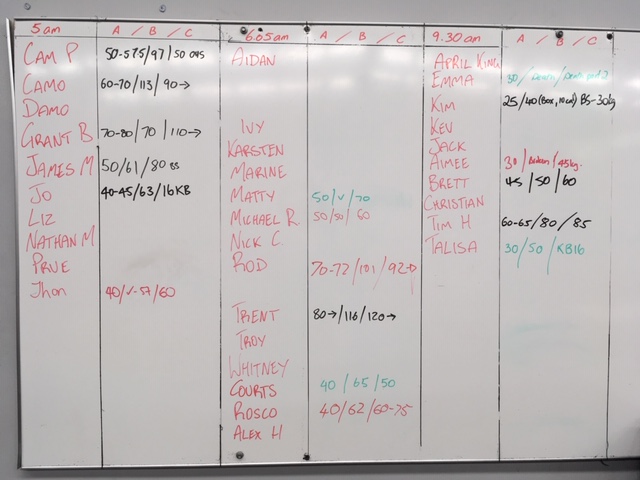 5am A / B / C
CAM P 50-57.5/97/50 OHS
CAMO 60-70/113/90→
DAMO
GRANT B 70-80/70/110→
JAMES M 50/61/80 BS
JO 40-45/63/16KB
LIZ
NATHAN M
PRUE
JHON 40/✓-57/60
6.05am A / B / C
AIDAN
IVY
KARSTEN
MARINE
MATTY 50/✓/70
MICHAEL R 50/50/60
NICK C.
ROD 70-72/101/92→
TRENT 80→/116/120→
TROY
WHITNEY
COURTS 40/65/50
ROSCO 40/62/60-75
ALEX H
9.30am A / B / C
APRIL KING
EMMA 30/
KIM 25/40(BOX, 10cm) BS-30kg
KEV
JACK
AIMEE 30/ /45kg.
BRETT 45/50/60
CHRISTIAN
TIM H 60-65/80/85
TALISA 30/50/KB16